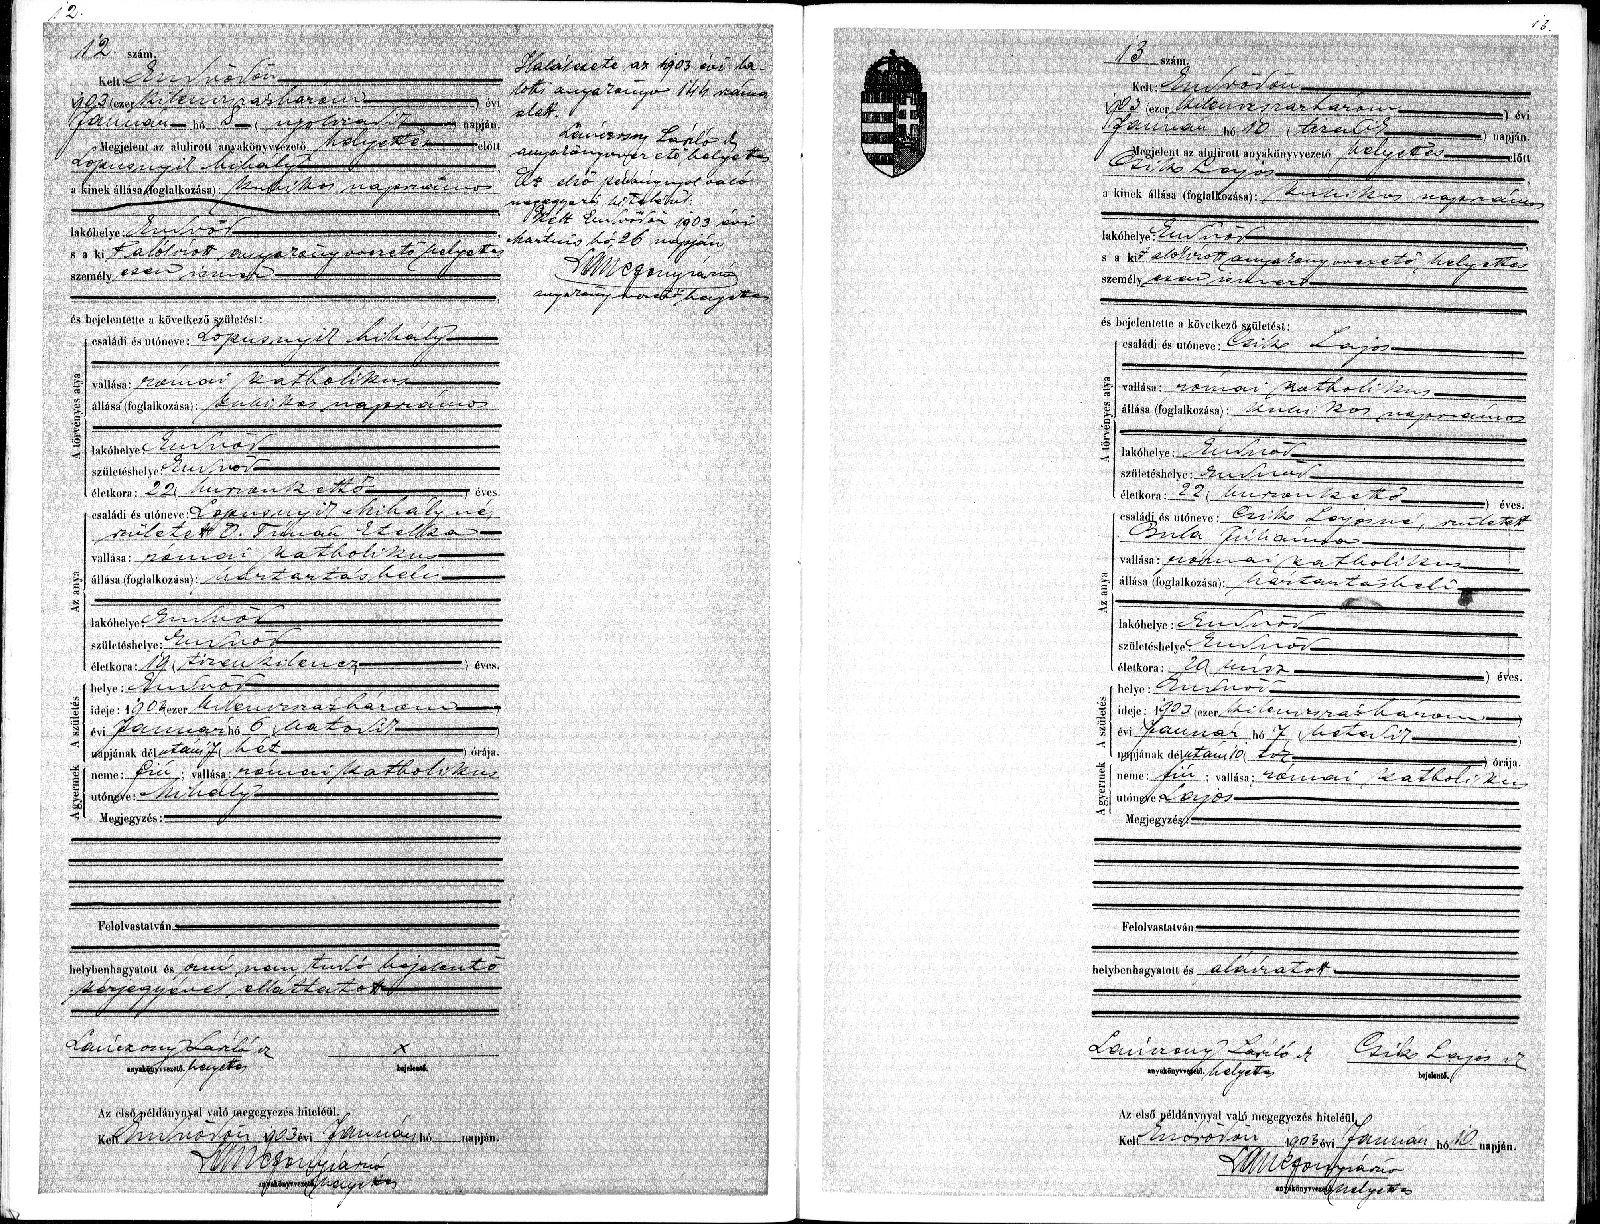 12.
12 szám.
Kelt: Endrődön
1903 (ezer kilenczszázhárom) évi
Január hó 8 (nyolczadik) napján.
Megjelent az alulirott anyakönyvvezető helyettes előtt
Lopusnyik Mihály
a kinek állása (foglalkozása): kubikos napszámos
lakóhelye: Endrőd
s a kit alólirott anyakönyvvezető helyettes
személyesen ismer
és bejelentette a következő születést:
A törvényes atya
családi és utóneve: Lopusnyik Mihály
vallása: római katholikus
állása (foglalkozása): kubikos napszámos
lakóhelye: Endrőd
születéshelye: Endrőd
életkora: 22 (huszonkettő) éves.
Az anya
családi és utóneve: Lopusnyik Mihályné,
született Etelka
vallása: római katholikus
állása (foglalkozása): háztartásbeli
lakóhelye: Endrőd
születéshelye: Endrőd
életkora: 19 (tizenkilencz) éves.
A születés
helye: Endrőd
ideje: 1903 (ezer kilenczszázhárom)
évi Január hó 6 (hatodik)
napjának délután 7 (hét) órája.
A gyermek
neme: fiú; vallása: római katholikus
utóneve: Mihály
Megjegyzés:
Felolvastatván
helybenhagyatott és irni nem tudó bejelentő
kézjegyével elláttatott
Laúrzony László sk x
anyakönyvvezető. helyettes bejelentő.
Az első példánynyal való megegyezés hiteléül.
Kelt Endrődön 1903 évi Január hó napján.
anyakönyvvezető. helyettes
Halálesete az 1903 évi ha-
lotti anyakönyv 144 száma
alatt.
László sk
anyakönyvvezető helyettes
Az első példánynyal való
megegyezés hiteléül.
Kelt Endrődön 1903 évi
Martius hó 26 napján
anyakönyvvezető helyettes
13.
13 szám.
Kelt: Endrődön
1903 (ezer kilenczszázhárom) évi
Január hó 10 (tizedik) napján.
Megjelent az alulirott anyakönyvvezető helyettes előtt
Csiks Lajos
a kinek állása (foglalkozása): kubikos napszámos
lakóhelye: Endrőd
s a kit alólirott anyakönyvvezető helyettes
személyesen ismer
és bejelentette a következő születést:
A törvényes atya
családi és utóneve: Csiks Lajos
vallása: római katholikus
állása (foglalkozása): kubikos napszámos
lakóhelye: Endrőd
születéshelye: Endrőd
életkora: 22 (huszonkettő) éves.
Az anya
családi és utóneve: Csiks Lajosné, született
Bula Juliánna
vallása: római katholikus
állása (foglalkozása): háztartásbeli
lakóhelye: Endrőd
születéshelye: Endrőd
életkora: 20 (húsz) éves.
A születés
helye: Endrőd
ideje: 1903 (ezer kilenczszázhárom)
évi Január hó 7 (hetedik)
napjának délután 10 (tíz) órája.
A gyermek
neme: fiú; vallása: római katholikus
utóneve: Lajos
Megjegyzés:
Felolvastatván
helybenhagyatott és aláiratott
László sk Csiks Lajos sk
anyakönyvvezető. helyettes bejelentő.
Az első példánynyal való megegyezés hiteléül.
Kelt Endrődön 1903 évi Január hó 10 napján.
anyakönyvvezető helyettes